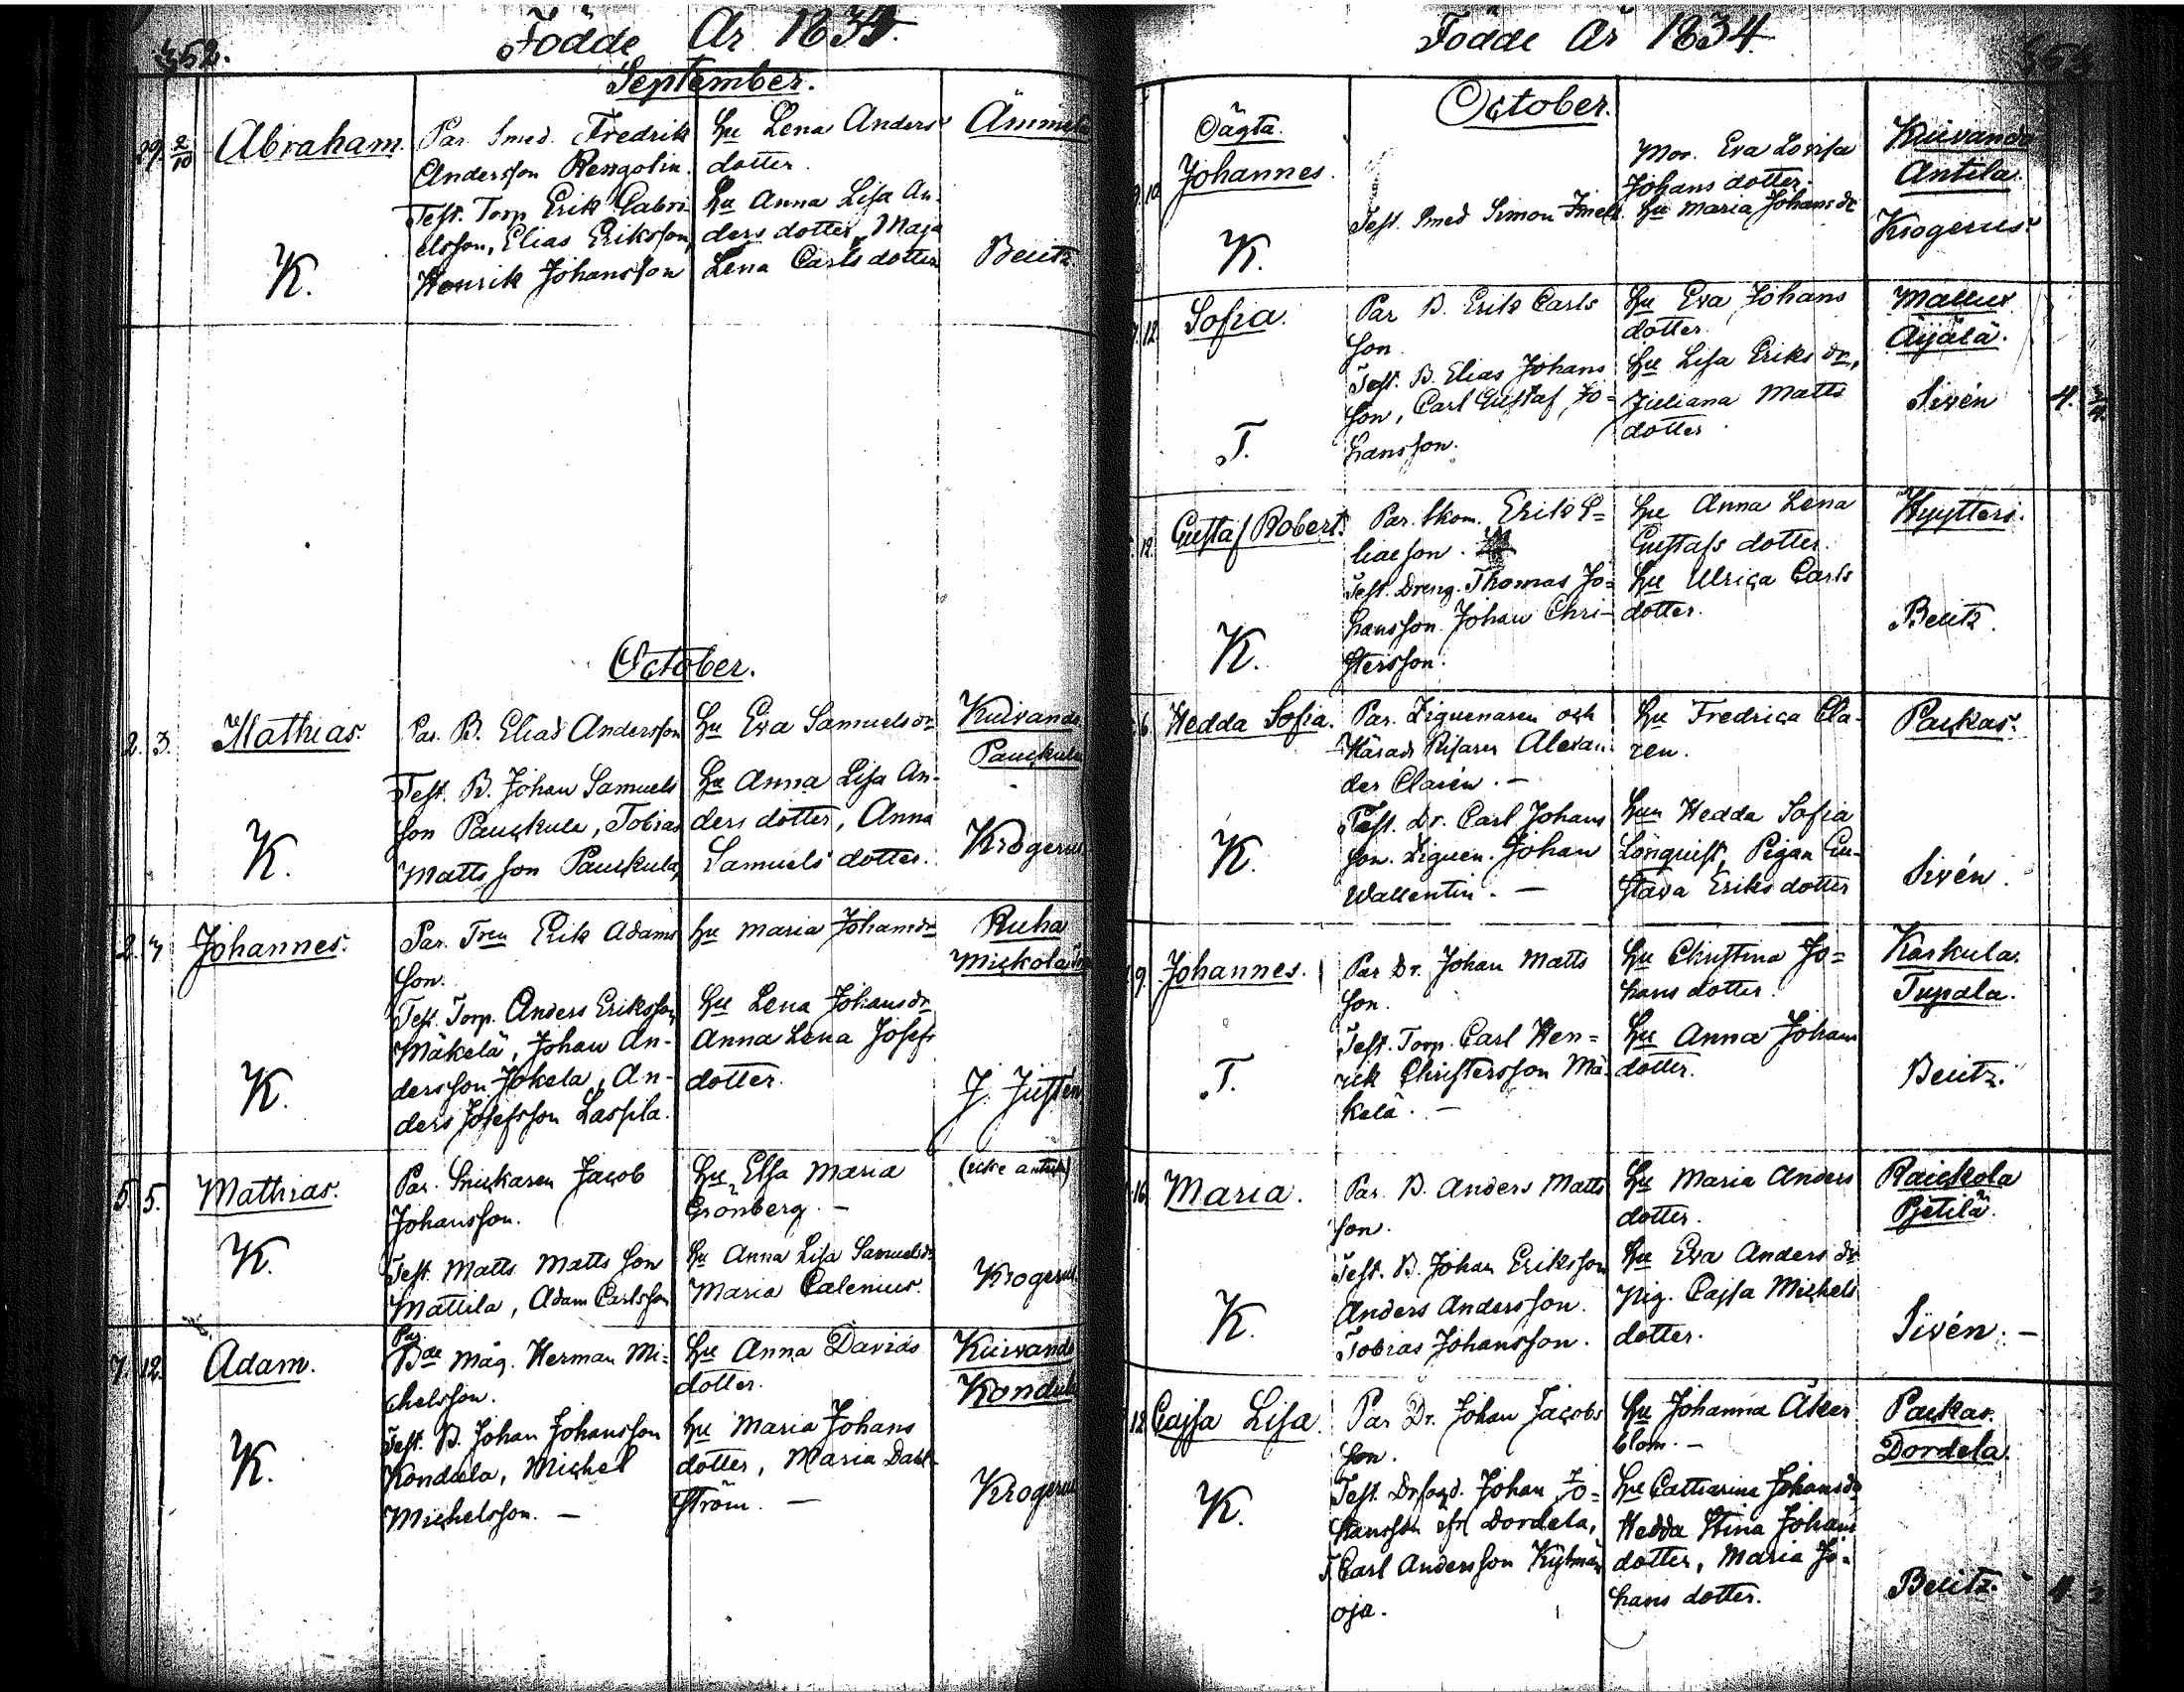 352.
Födde År 1834.
September.
29. 2/10 Abraham.
Par. Smed. Fredrik
Andersson Rengolin.
Test. Torp. Erik Gabri
elsson, Elias Eriksson,
Henrik Johansson
Hu Lena Anders
dotter.
Hu Anna Lisa An-
ders dotter, Maja
Lena Carls dotter
Beutz
K.
October.
2. 3. Mathias.
Par. B. Elias Andersson
Test. B. Johan Samuels
son Pauckula, Tobias
Matts son Pauckula,
Hu Eva Samuelsdr
Hu Anna Lisa An-
ders dotter, Anna
Samuels dotter.
Kuivanda
Pauckula
Krogerus
K.
2. Johannes.
Par. Tren Erik Adams
son.
Test. Torp. Anders Eriksson
Mäkelä, Johan An-
dersson Jokela, An-
ders Josefsson Laspila.
Hu Maria Johansdr
Hu Lena Johansdr
Anna Lena Josefs
dotter.
Ruha
Mickola
J. Justén
K.
5. 5. Mathias.
Par. Snickaren Jacob
Johansson.
Test. Matts Matts son
Mattila, Adam Carlsson
Hu Elsa Maria
Grönberg. –
Hu Anna Lisa Samuelsdr
Maria Calenius.
Krogerus
K.
7. 12. Adam.
Par
Bde Måg. Herman Mi-
chelsson.
Test. B. Johan Johansson
Kondula, Michel
Michelsson. –
Hu Anna Davids
dotter.
Hu Maria Johans
dotter, Maria Dahl-
ström. –
Kuivanda
Kondula
Krogerus
K.
353
Födde År 1834
October.
Oägta.
Johannes.
Test. Smed Simon
Mor. Eva Lovisa
Johans dotter.
Hu Maria Johans dr
Kuivanda
Antila.
Krogerus
K.
12 Sofia.
Par B. Erik Carls
son
Test. B. Elias Johans
son, Carl Gustaf Jo-
hansson.
Hu Eva Johans
dotter.
Hu Lisa Eriks dr,
Juliana Matts
dotter
Äijälä.
Sivén
4.
T.
12. Gustaf Robert.
Par. Skom. Erik E=
liaeson.
Test. Dreng. Thomas Jo=
hansson. Johan Chri-
stersson.
Hu Anna Lena
Gustafs dotter.
Hu Ulrica Carls
dotter.
Hyytteri.
Beutz.
K.
6 Hedda Sofia.
Par. Ziguenaren och
Alexan
der Clarén. –
Test. Dr. Carl Johans
son. Ziguen. Johan
Wallentin. –
Hu Fredrica Cla-
ren.
Hun Hedda Sofia
Lönquist, Pigan Gu-
stava Eriks dotter
Packas.
Sivén.
K.
9. Johannes.
Par Dr. Johan Matts
son.
Test. Torp. Carl Hen=
rik Christersson Mä-
kelä. –
Hu Christina Jo=
hans dotter.
Hu Anna Johans
dotter.
Karkula.
Tupala.
Beutz.
T.
16 Maria.
Par. B. Anders Matts
son.
Test. B. Johan Eriksson
Anders Andersson.
Tobias Johansson.
Hu Maria Anders
dotter.
Hu Eva Anders dr
Pig. Cajsa Michels
dotter.
Pjetilä.
Sivén. –
K.
12 Cajsa Lisa.
Par Dr. Johan Jacobs
son.
Test. Johan Jo=
hansson Dordela,
Carl Andersson Kylmä
oja.
Hu Johanna Åker
blom. –
Hu Catharina Johansdr
Hedda Stina Johans
dotter, Maria Jo-
hans dotter.
Packas.
Dordela.
Beutz.
K.